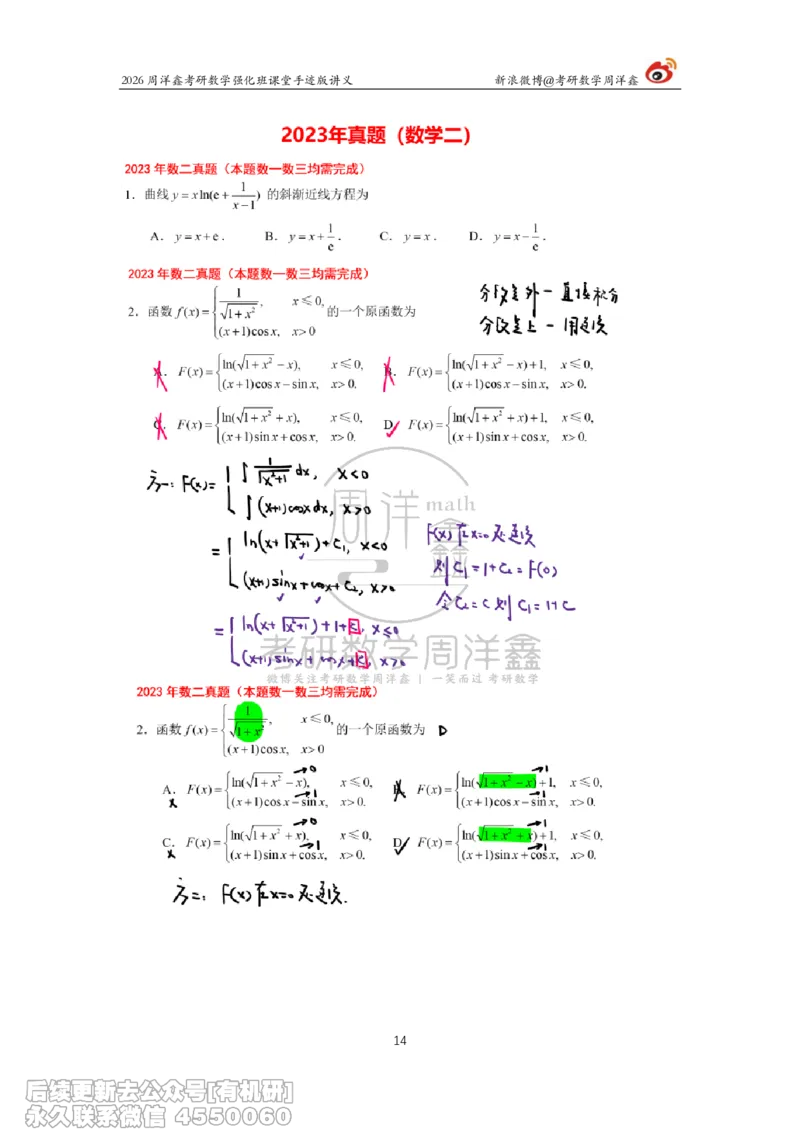 2026 周洋鑫考研数学强化班课堂手迹版讲义 新浪微博@考研数学周洋鑫
2023年真题（数学二）
2023 年数二真题（本题数一数三均需完成）
1. 曲线 y = x ln(e + 1/(x−1)) 的斜渐近线方程为
A. y = x + e . B. y = x + 1/e . C. y = x . D. y = x − 1/e .
2023 年数二真题（本题数一数三均需完成）
2. 函数 f(x) = { 1/√(1+x²), x ≤ 0, (x+1)cos x, x > 0 的一个原函数为
分段点外 - 直接积分
分段点上 - 用连续
A. F(x) = { ln(√(1+x²) − x), x ≤ 0, (x+1)cos x − sin x, x > 0.
B. F(x) = { ln(√(1+x²) − x) + 1, x ≤ 0, (x+1)cos x − sin x, x > 0.
C. F(x) = { ln(√(1+x²) + x), x ≤ 0, (x+1)sin x + cos x, x > 0.
D. F(x) = { ln(√(1+x²) + x) + 1, x ≤ 0, (x+1)sin x + cos x, x > 0.
方一: F(x) = { ∫ 1/√(x²+1) dx, x < 0
∫ (x+1)cosx dx, x > 0
= { ln(x + √(x²+1)) + C₁, x < 0
(x+1)sinx + cosx + C₂, x > 0
= { ln(x + √(x²+1)) + 1 + C, x ≤ 0
(x+1)sinx + cosx + C, x > 0
F(x)在x=0处连续
则 C₁ = 1 + C₂ = F(0)
令 C₂ = C 则 C₁ = 1 + C
周洋鑫 math
考研数学周洋鑫
微博关注考研数学周洋鑫 | 一笑而过 考研数学
2023 年数二真题（本题数一数三均需完成）
2. 函数 f(x) = { 1/√(1+x²), x ≤ 0, (x+1)cos x, x > 0 的一个原函数为 D
A. F(x) = { ln(√(1+x²) − x), →0 x ≤ 0, (x+1)cos x − sin x, →1 x > 0.
B. F(x) = { ln(√(1+x²) − x) + 1, →1 x ≤ 0, (x+1)cos x − sin x, →1 x > 0.
C. F(x) = { ln(√(1+x²) + x), →0 x ≤ 0, (x+1)sin x + cos x, →1 x > 0.
D. F(x) = { ln(√(1+x²) + x) + 1, →1 x ≤ 0, (x+1)sin x + cos x, →1 x > 0.
方二: F(x)在x=0处连续.
14
后续更新去公众号[有机研]
永久联系微信 4550060